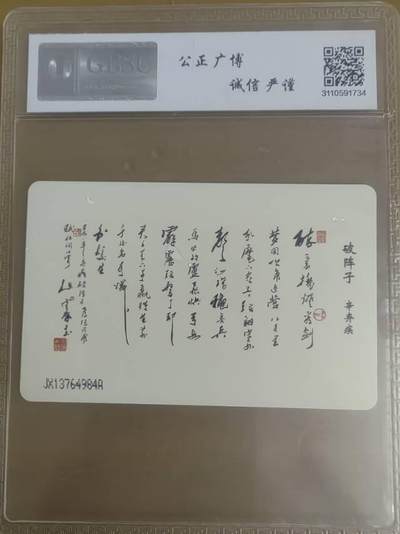 公正广博
诚信严谨
3110591734
破阵子 辛弃疾
醉里挑灯看剑
梦回吹角连营八百里
分麾下炙五十弦翻塞外
声沙场秋点兵
馬作的盧飛快弓如
霹靂弦驚了却
君王天下事贏得生前
身后名可憐
白髮生
JX13764984A